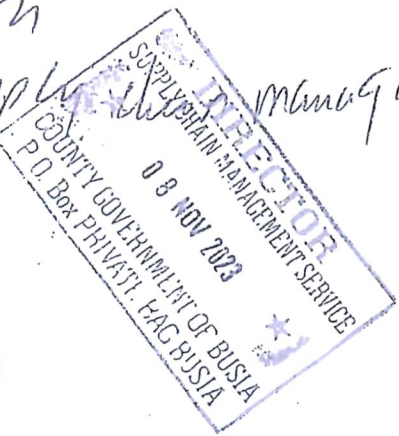 manag
DIRECTOR
SUPPLY CHAIN MANAGEMENT SERVICE
08 NOV 2023
COUNTY GOVERNMENT OF BUSIA
P.O. Box PRIVATE BAG BUSIA